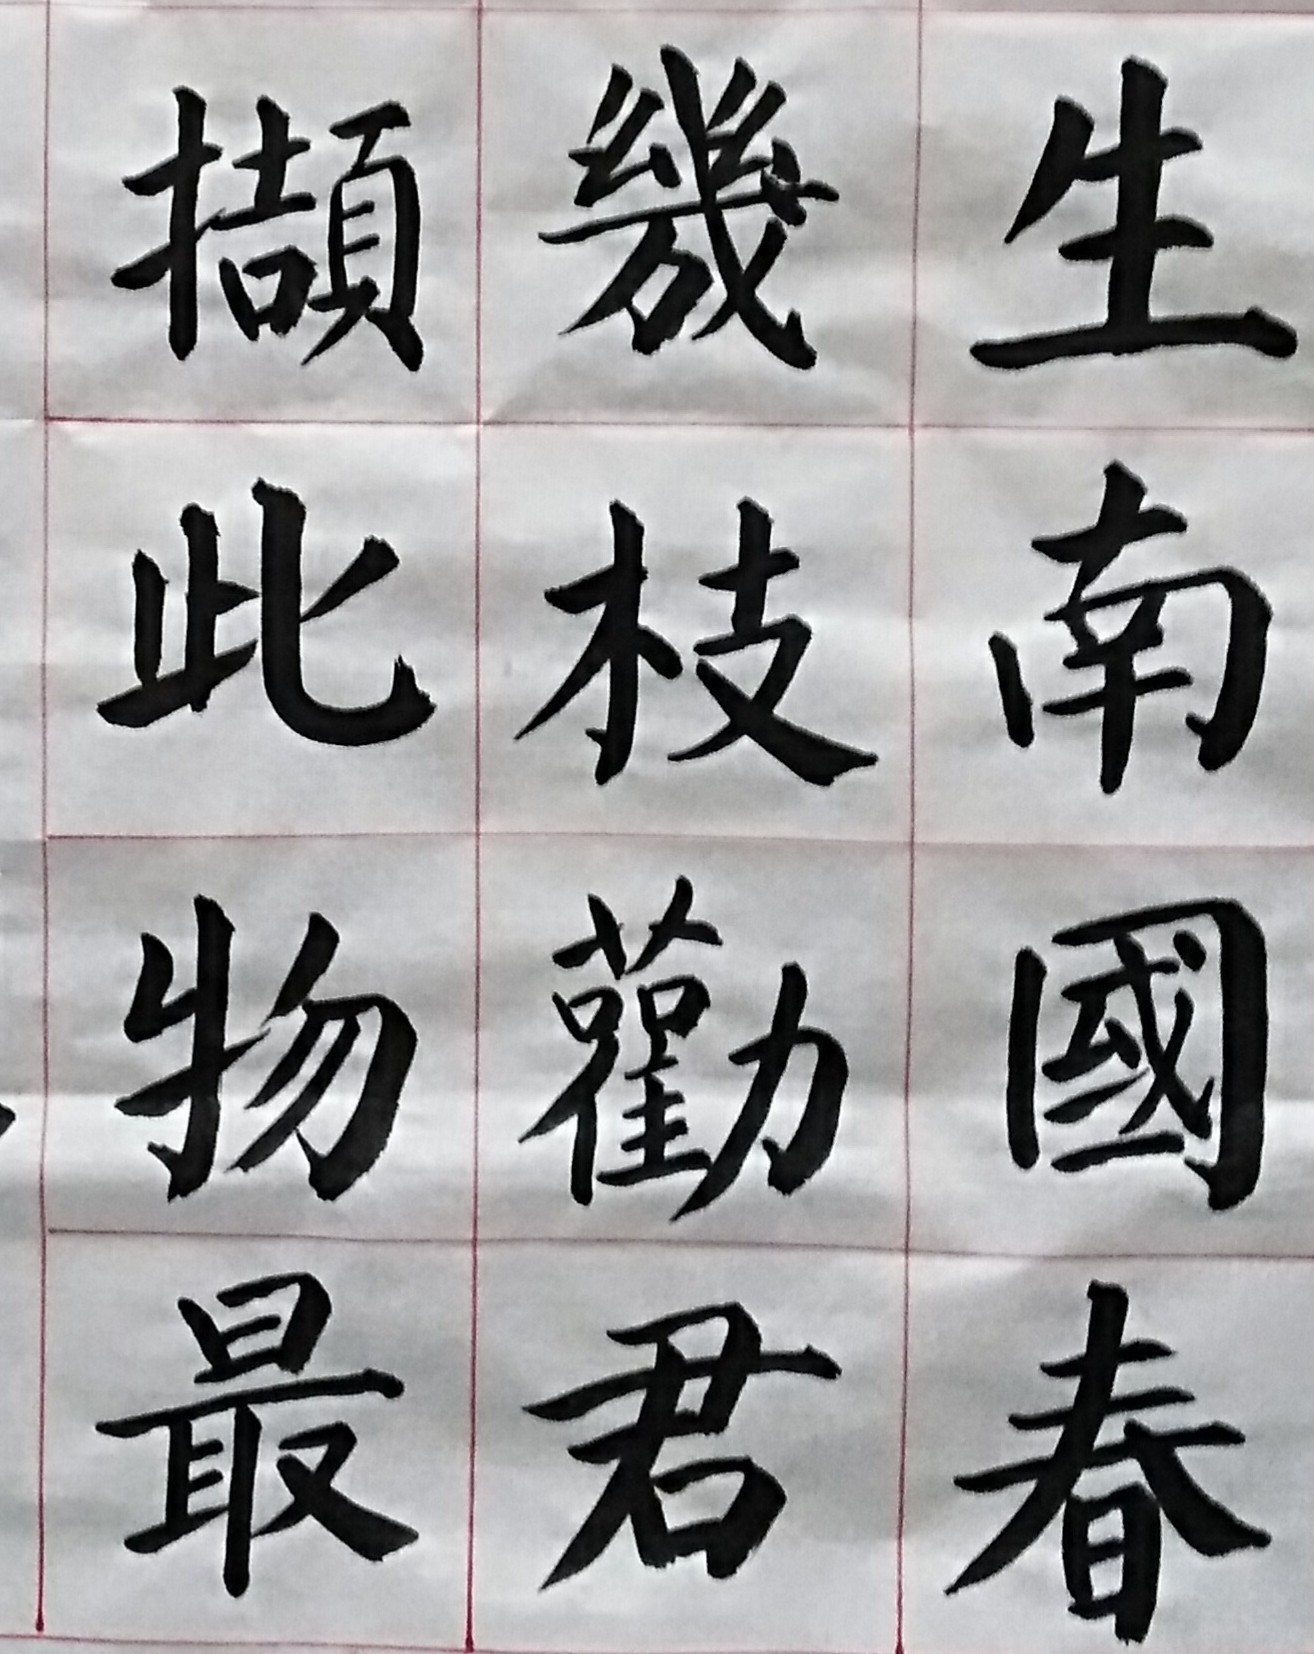 生南國春
幾枝勸君
擷此物最